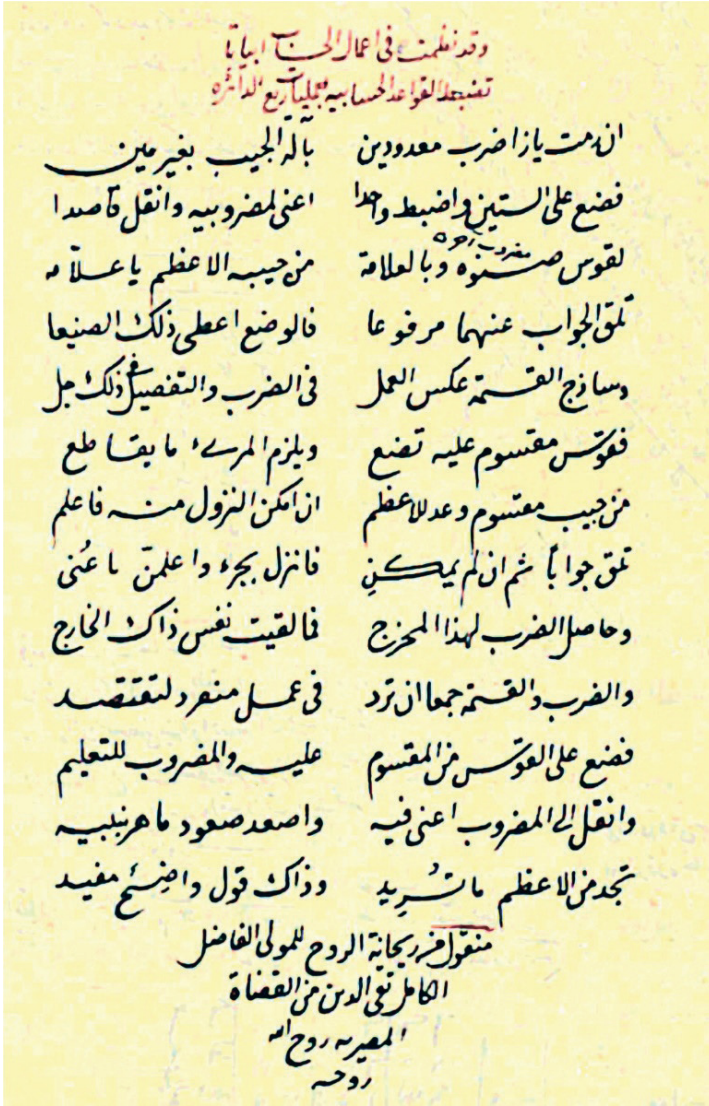 وقد نظمت فى اعمال الحساب ابياتا
تضبط القواعد الحسابيه بربع الدائره
ان رمت ياذا ضرب معدودين بآلة الجيب بغير مين
فضع على الستين واضبط واحدا اعنى لمضروبيه وانقل قاصدا
لقوس صنوه وبالعلامة من جيبه الاعظم يا علامه
مضروب آخره
تلق الجواب عنهما مرفوعا فالوضع اعطى ذلك الصنيعا
وساذج القسمة عكس العمل فى الضرب والتفصيل فى ذلك جل
فقوس مقسوم عليه تضع ويلزم المرىء ما يقاطع
من جيب مقسوم وعد للاعظم ان امكن النزول منه فاعلم
تلق جوابًا ثم ان لم يمكنِ فانزل بجزء واعلمنّ ما عُنى
وحاصل الضرب لهذا المخرج فما لقيت نفس ذاك الخارج
والضرب والقسمة جمعا ان ترد فى عمل منفرد لتقتصد
فضع على القوس من المقسوم عليه والمضروب للتعليم
وانقل الى المضروب اعنى فيه واصعد صعود ماهر نبيه
تجد من الاعظم ما تُريد وذاك قول واضح مفيد
منقول من ريحانة الروح للمولى الفاضل
الكامل تقى الدين من القضاة
المصريه روح الله
روحه